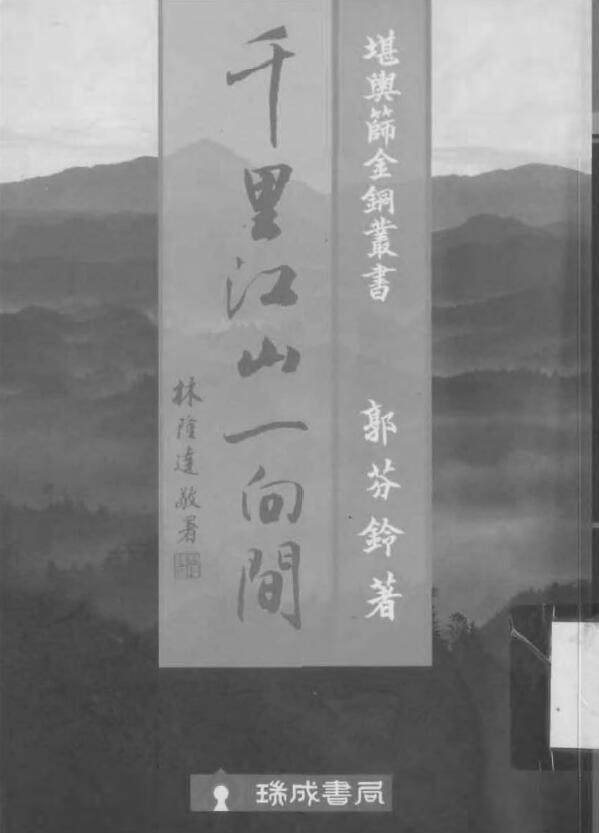 堪輿篩金銅叢書
郭芬鈴 著
千里江山一向間
林隆達敬署
瑞成書局